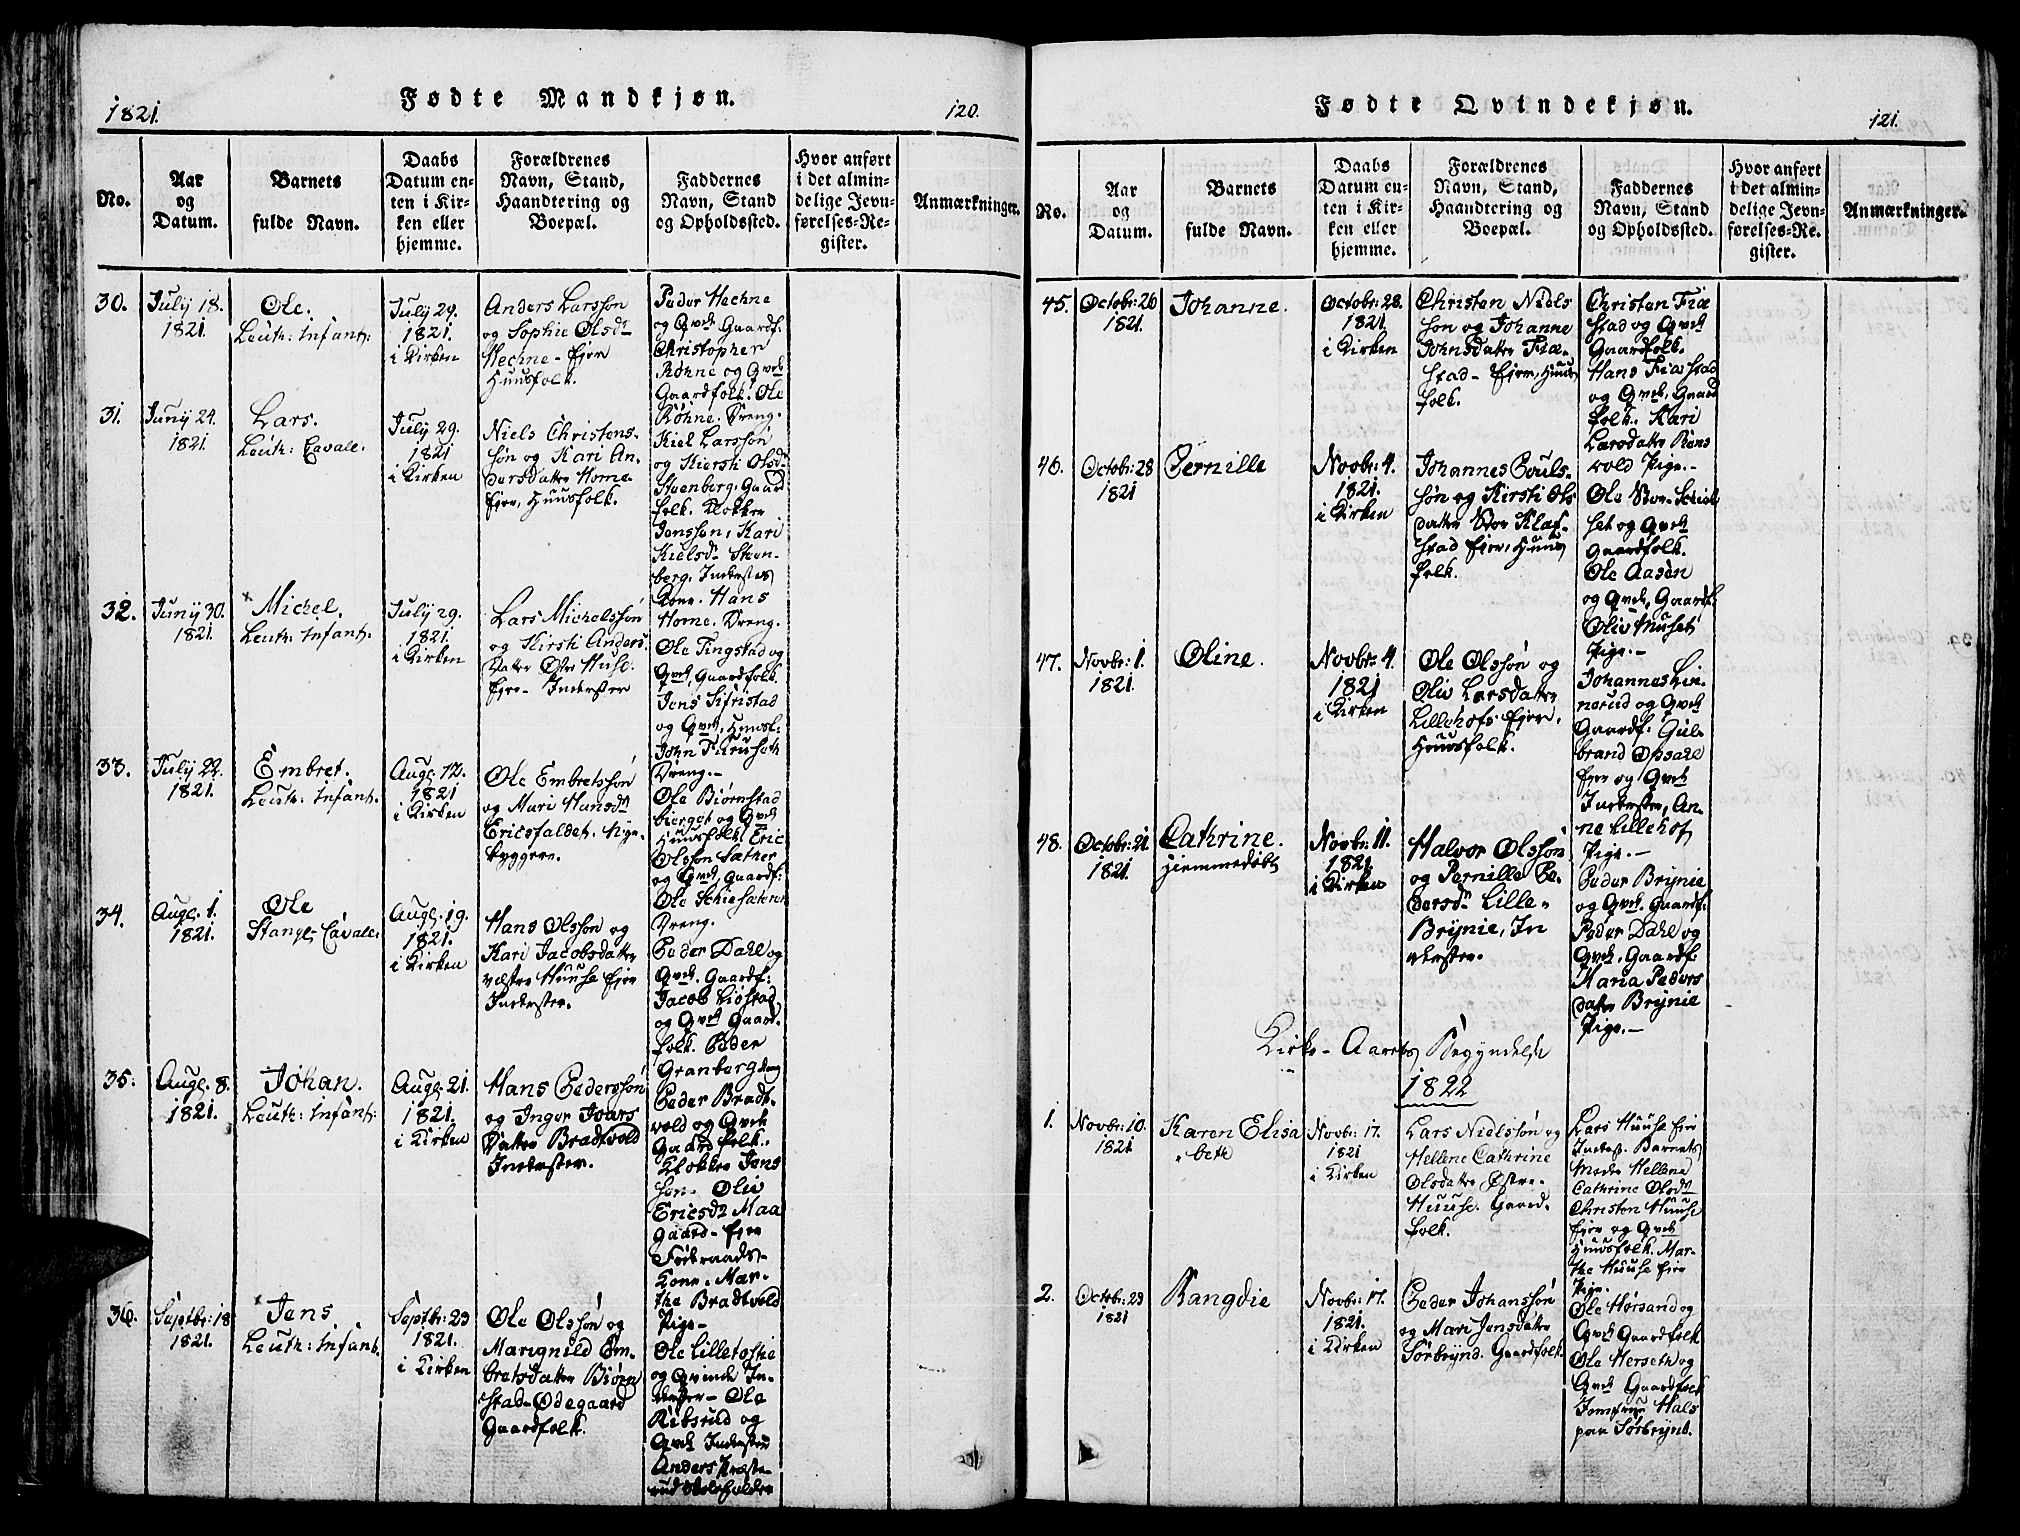 1821.
Fødte Mandkjøn.
120.
No.
Aar
og
Datum.
Barnets
fulde Navn.
Daabs
Datum en-
ten i Kir-
ken eller
hjemme.
Forældrenes
Navn, Stand,
Haandtering og
Boepæl.
Faddernes
Navn, Stand
og Opholdssted.
Hvor anført
i det almin-
delige Jevn-
førelses-Re-
gister.
Anmærkninger.
30.
July 18.
1821.
Ole.
Leuth: Infant:
July 29.
1821.
i Kirken
Anders Larssøn
og Sophie Olsdr
Hechne - Ejer
Huusfolk.
Peder Hechne
og Qvek Gaardf:
Christopher
Røhne og Qvek
Gaardfolk. Ole
Røhne. Dreng.
31.
Juny 24.
1821.
Lars.
Leuth: Cavale.
July 29.
1821
i Kirken
Niels Christens-
søn og Kari An-
dersdatter Horne-
Ejer, Huusfolk.
Kiel Larssøn
og Kiersti Olsdr
Steenberg. Gaar
folk. Klokker
Jenssøn, Kari
Kielsdr Steen-
berg. Inderstes
Kone. Hans
Horne. Dreng.
32.
Juny 30.
1821.
Michel.
Leuth: Infant:
July 29.
1821.
i Kirken
Lars Michelssøn
og Kirsti Anders
datter Østre Huse.
Ejer- Inderster
Ole Tingstad og
Qvek, Gaardfolk.
Jens Sifristad
og Qvek, Huusf.
John Furuseth
Dreng.-
33.
July 22.
1821.
Embret.
Leuth: Infant.
Aug. 12.
1821
i Kirken
Ole Embretssøn
og Mari Hansdr
Ericsfaldet. Nye-
byggere.
Ole Biørnstad
bierget og Qvek
Huusfolk. Eric
Olssøn Sæther
og Qvek, Gaardf:
Ole Schiesæteren
Dreng.
34.
Aug. 1.
1821.
Ole
Stang- Cavale:
Aug. 19.
1821.
i Kirken
Hans Olssøn og
Kari Jacobsdatter
Vestre Huuse Ejer
Inderster.
Peder Dahl og
Qvek. Gaardf:
Jacob Liøstad
og Qvek Gaard-
folk. Peder
Granberg dreng
35.
Aug. 8.
1821.
Johan.
Leuth: Infant:
Aug. 21.
1821.
i Kirken
Hans Pederssøn
og Inger Ivars
datter Bradtvold
Inderster.
Peder Bradt-
vold og Qvek
Gaardfolk.
Klokker Jens
søn. Oliv
Ericsdr Maa
gaard- Ejer
Føderaads-
Kone. Mar-
the Bradtvold
Pige-
36.
Septbr: 18
1821.
Jens
Leuth: Infant.
Septbr: 23
1821.
i Kirken
Ole Olssøn og
Marignild Em-
bretsdatter Biørn
stad- Ødegaard
Gaardfolk.
Ole Lilletoshie
og Qvinde In-
derster- Ole
Ribsrud og
Qvek Inderster
Anders
Fødte Qvindekjøn.
121.
No.
Aar
og
Datum.
Barnets
fulde Navn.
Daabs
Datum en-
ten i Kir-
ken eller
hjemme.
Forældrenes
Navn, Stand,
Haandtering og
Boepæl.
Faddernes
Navn, Stand
og Opholdssted.
Hvor anført
i det almin-
delige Jevn-
førelses-Re-
gister.
Anmærkninger.
45.
Octobr: 26
1821.
Johanne.
Octobr: 28.
1821.
i Kirken
Christen Niels
søn og Johanne
Johnsdatter Fiæ-
stad- Ejer, Huus
folk.
Christen Fiæ
stad og Qvek
Gaardfolk.
Hans Fiæstad
og Qvek, Gaard
folk. Kari
Larsdatter Rens
vold Pige.-
46.
Octobr: 28
1821
Pernille
Novbr: 4.
1821.
i Kirken
Johannes Pouls-
søn og Kirsti Ols
datter Stor Klaf-
stad Ejer, Huus
folk.
Ole Stor-Schiel
set og Qvek
Gaardfolk.
Ole Aasen
og Qvek, Gaardf:
Oliv Huset
Pige.-
47.
Novbr: 1.
1821.
Oline.
Novbr: 4.
1821
i Kirken
Ole Olssøn og
Oliv Larsdatter
Lillehof- Ejer.
Huusfolk.
Johannes Lin-
nerud og Qvek
Gaardf: Gul-
brand Opsahl
Ejer og Qvek
Inderster, An-
ne Lillehof
Pige.-
48.
Octobr: 21.
1821.
Cathrine.
Hiemmedøbt
Novbr: 11.
1821.
i Kirken
Halvor Olssøn
og Pernille Pe-
dersdr Lille-
Brynie, In
derster.
Peder Brynie
og Qvek. Gaardf:
Peder Dahl og
Qvek, Gaardf:
Maria Peders
datter Brynie
Pige.-
Kirke-Aarets Begyndelse
1822
1.
Novbr: 10.
1821
Karen Elisa
beth
Novbr: 17.
1821
i Kirken
Lars Nielssøn og
Hellene Cathrine
Olsdatter Østre-
Huuse. Gaard-
folk.
Lars Huuse Ejer
Inderst. Barnets
Moder Hellene
Cathrine Olsdr
Christen Huuse
Ejer og Qvek
Huusfolk. Mar-
the Huuse Ejer
Pige.
2.
Octobr: 23
1821
Rangdie
Novbr: 17.
1821.
i Kirken
Peder Johanssøn
og Mari Jensdatter
Sørbrynd. Gaardfolk.
Ole Horsand og
Qvek Gaardfolk
Ole Herseth og
Qvek Gaardfolk
Jomfrue Hals
paa Sørbrynd.